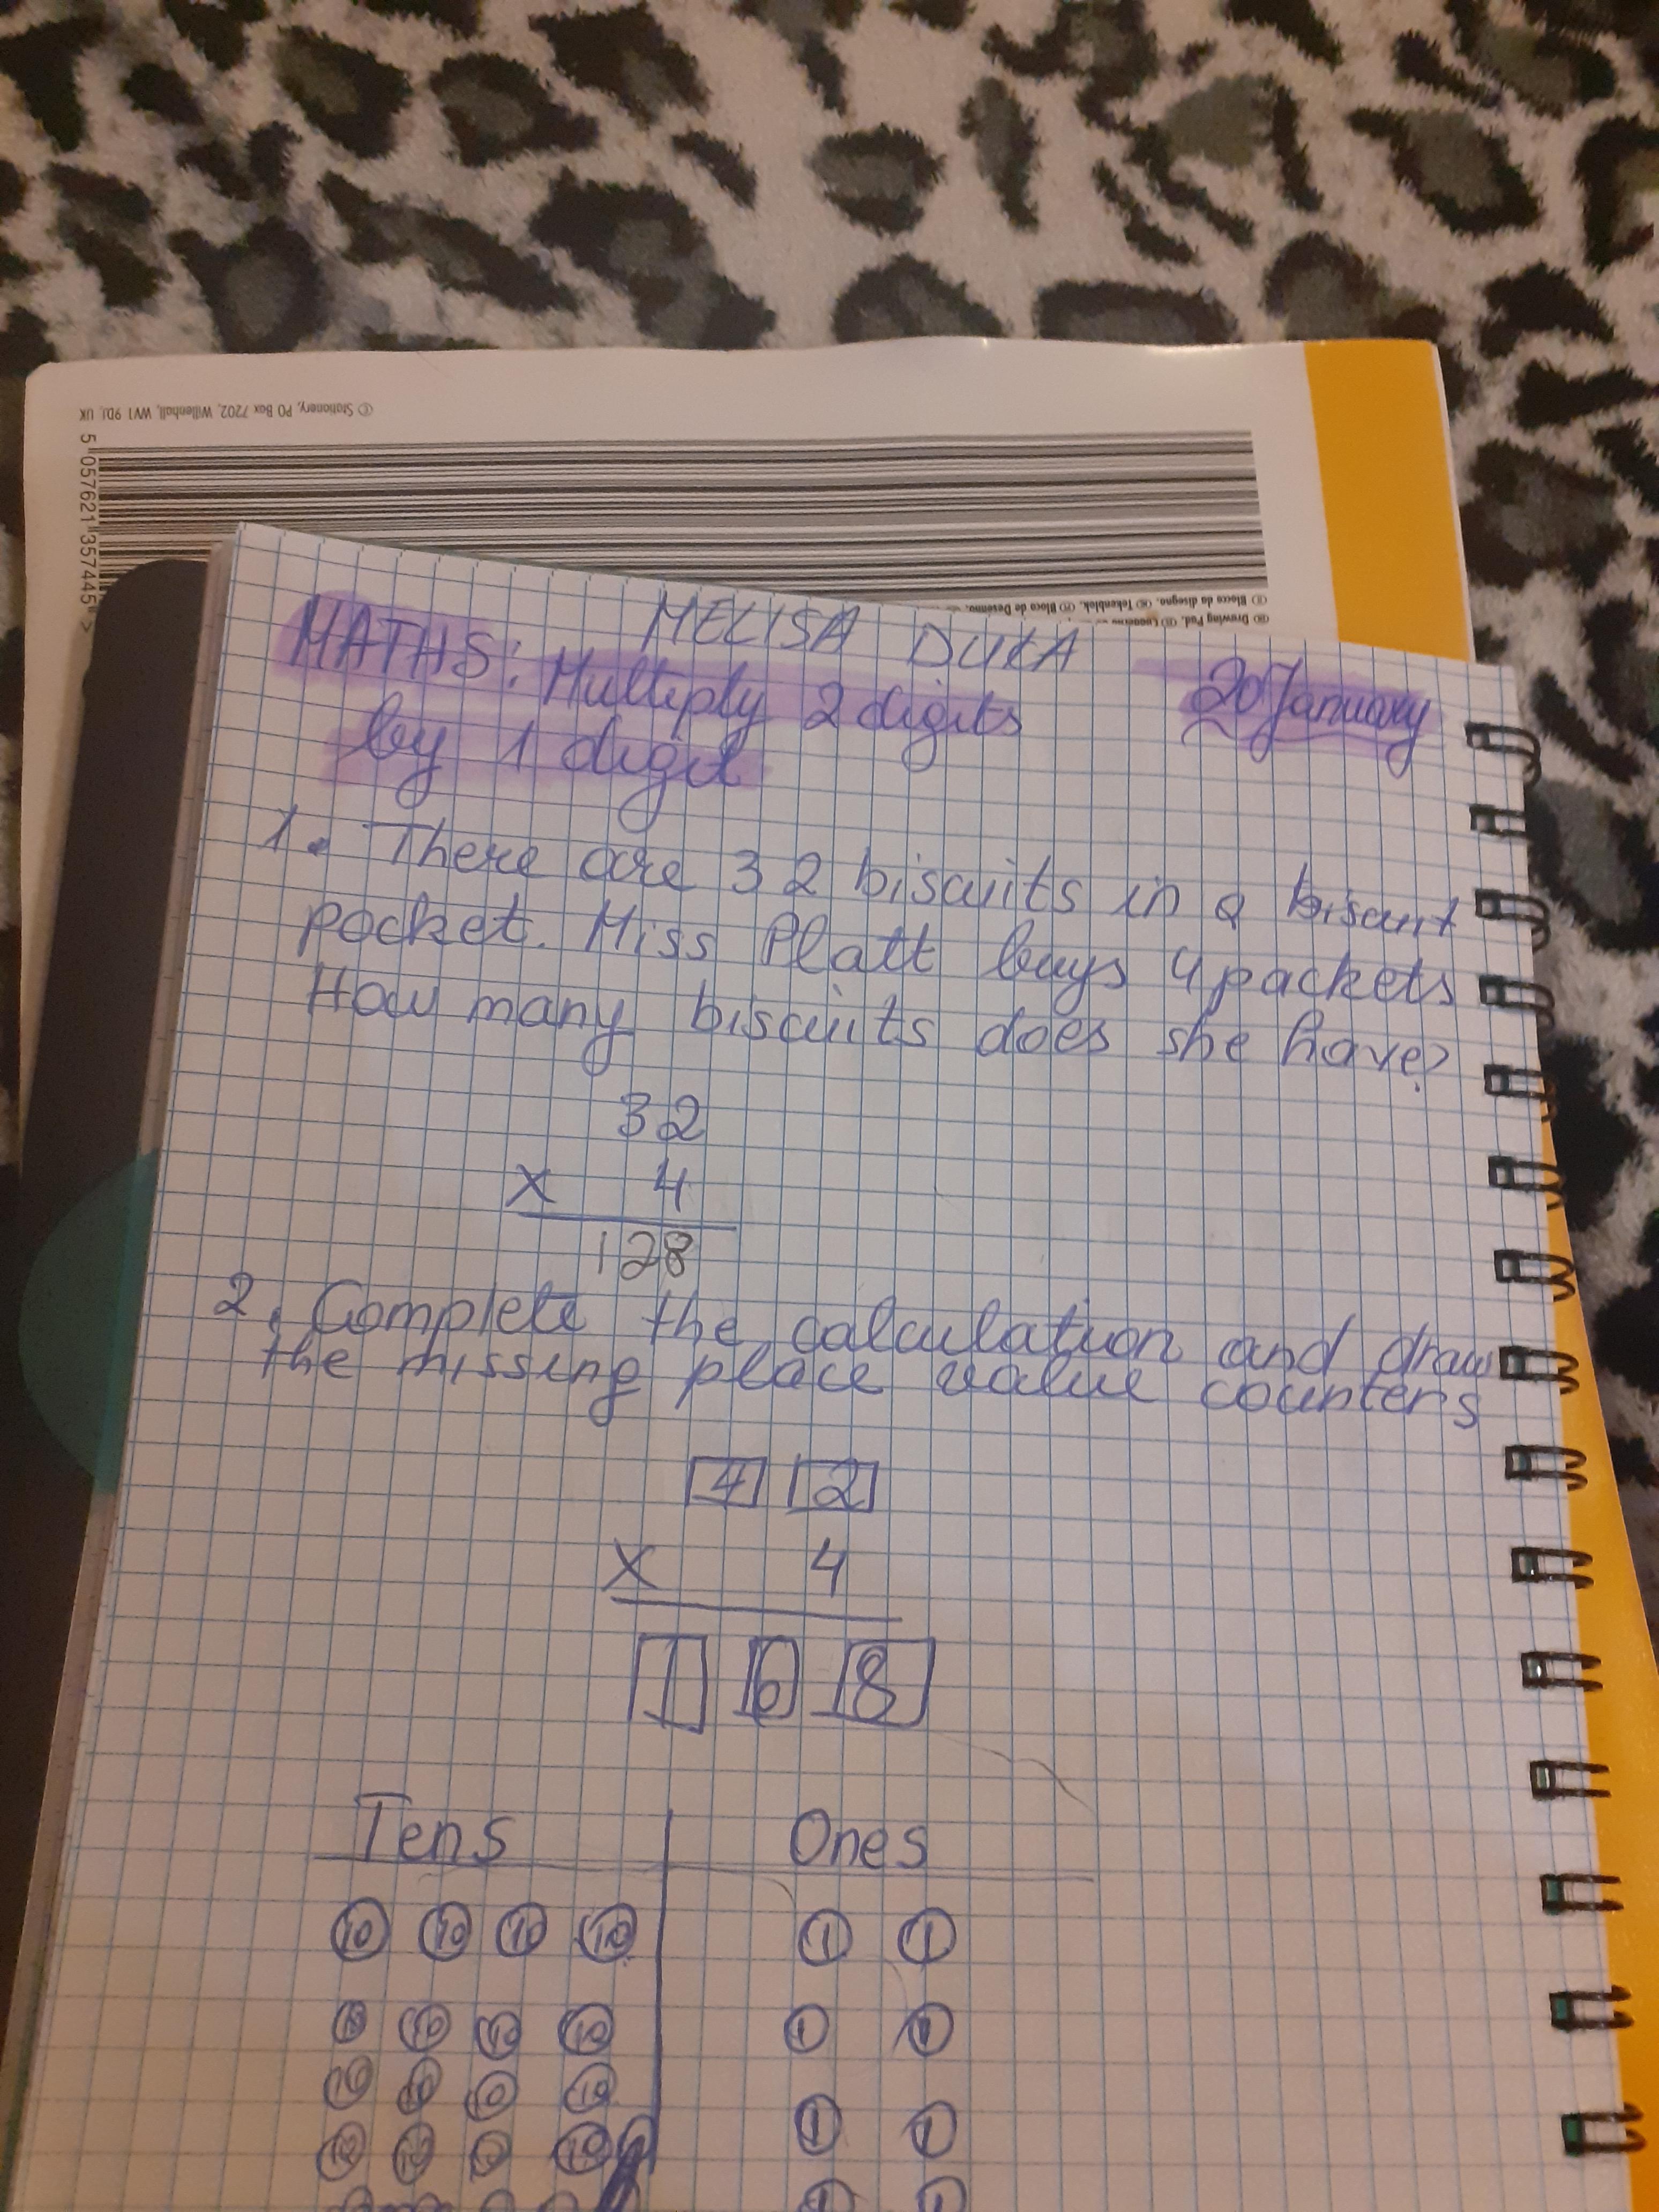 © Stationery, PO Box 7202, Willenhall, WV1 9DJ, UK
5 057621 357445 >
Drawing Pad. Blocco da disegno. Tekenblok. Bloco de Desenho.
MELISA DUKA
MATHS: Multiply 2 digits
by 1 digit
20 January
1. There are 32 biscuits in a biscuit
pocket. Miss Platt buys 4 packets
How many biscuits does she have?
32
x 4
128
2. Complete the calculation and draw
the missing place value counters
4 2
x 4
1 6 8
Tens Ones
10 10 10 10 1 1
10 10 10 10 1 1
10 10 10 10
10 10 10 10 1 1
1 1